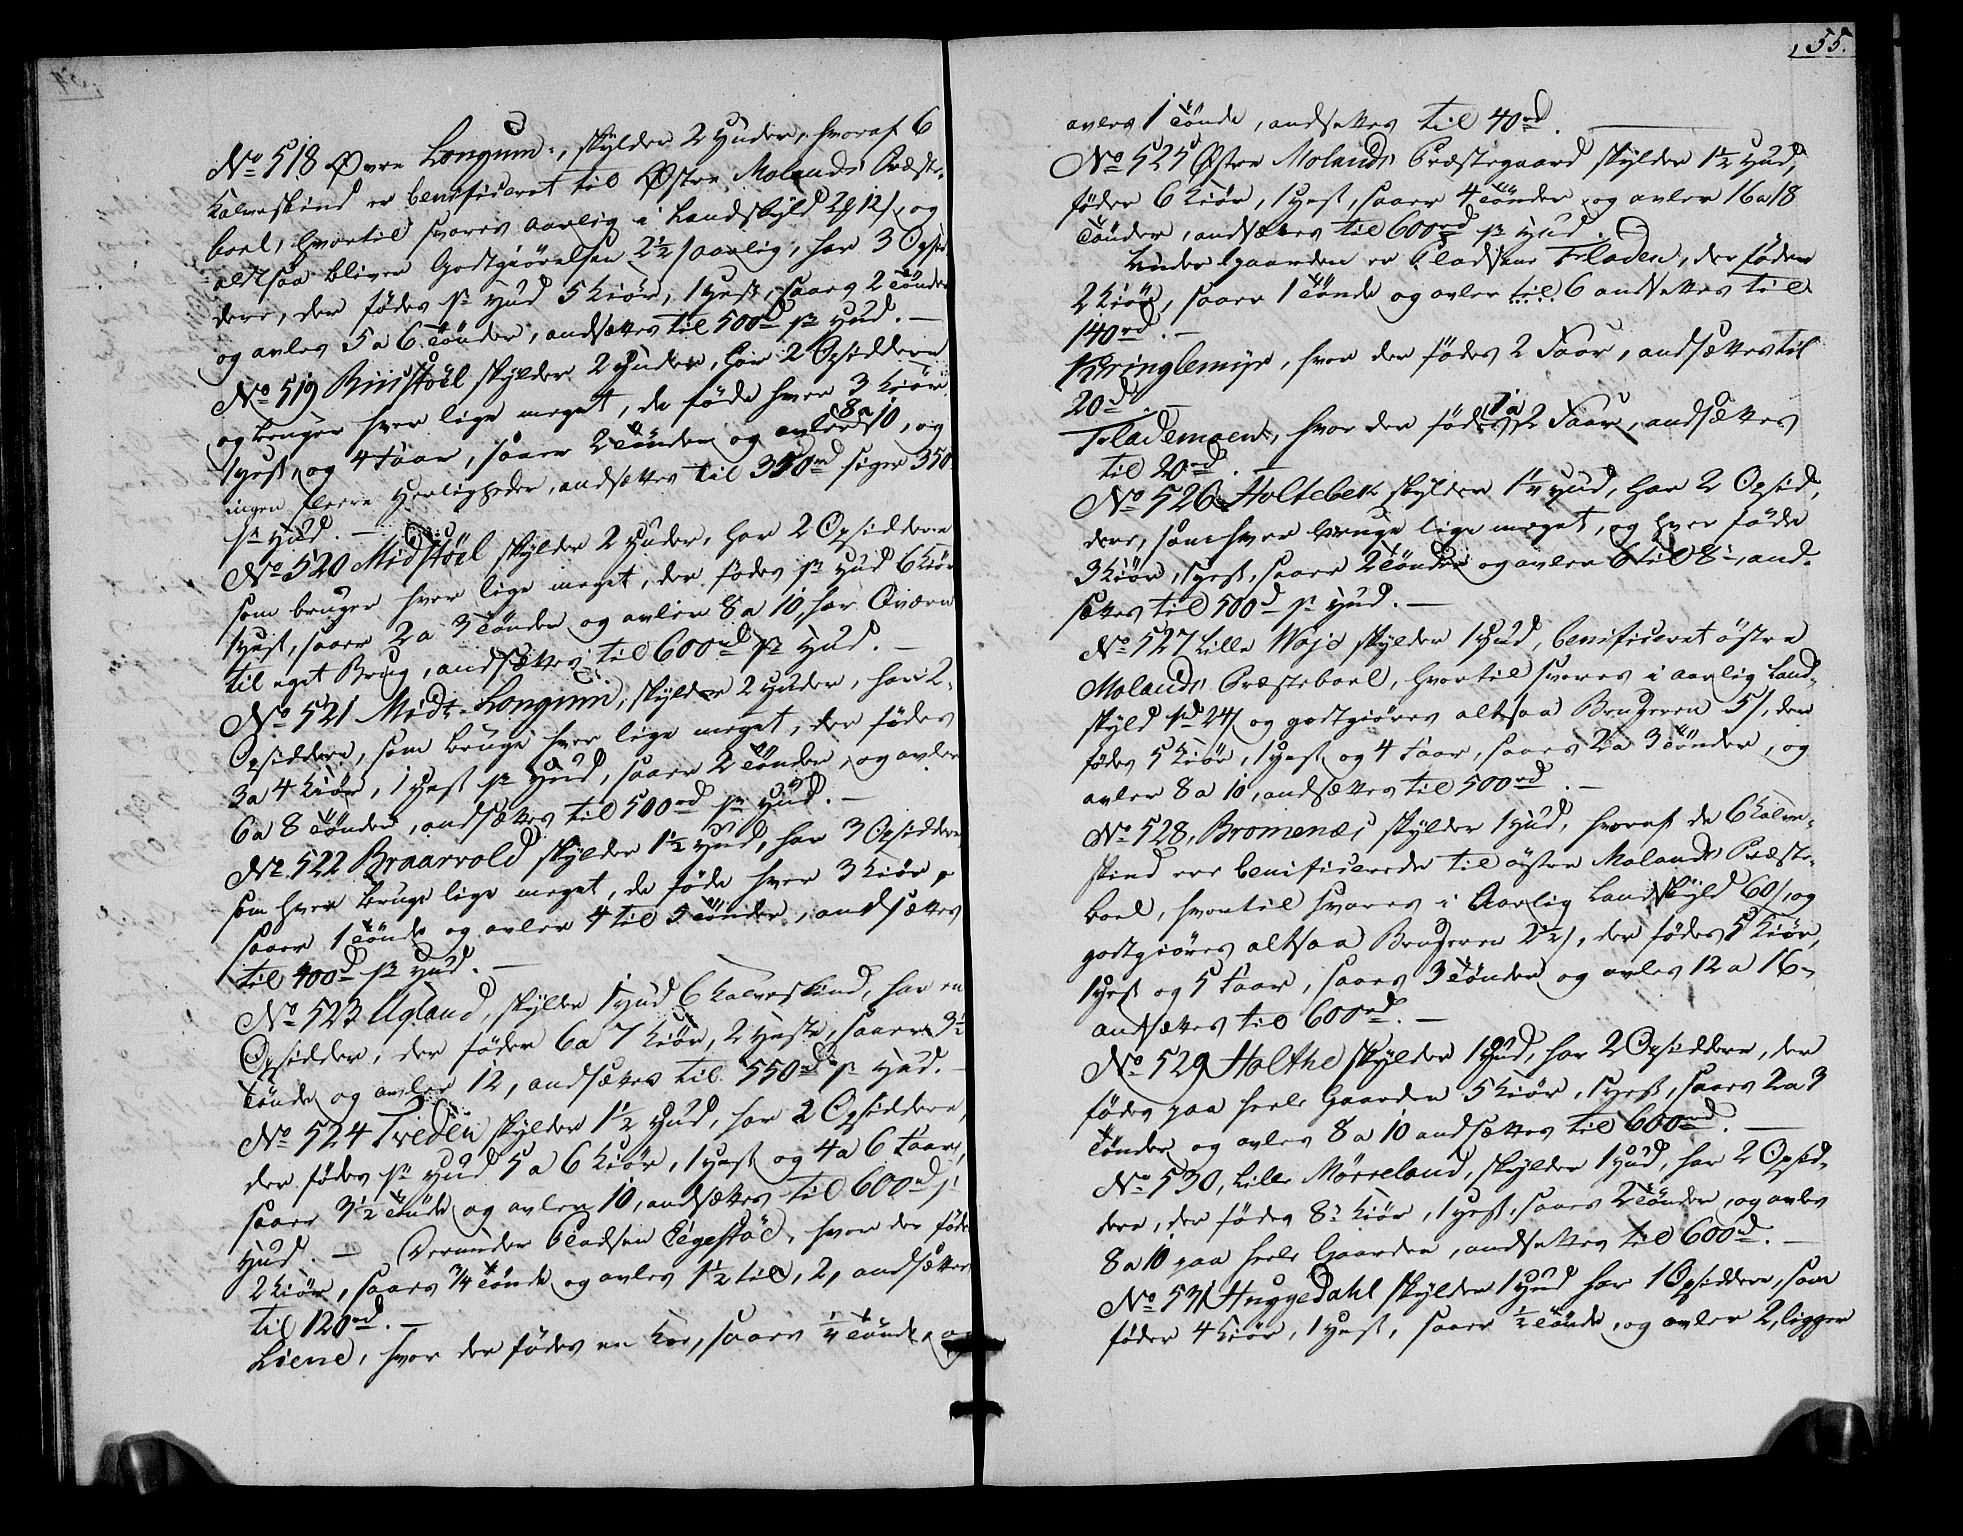 No 518 Øvre Longum, skylder 2 Huder, hvoraf 6
Kalveskind er benificeret til Østre Molands Præste-
boel, hvortil svares aarlig i Landskyld 2 12 s, og
altsaa bliver Godtgiørelsen 2½ s aarlig, har 3 Opsid-
dere, der fødes pr Hud 5 Kiør, 1 Hest, saaes 2 Tønder
og avles 5 a 6 Tønder, andsættes til 500 rd pr Hud. —
No 519 Biустøel skylder 2 Huder, har 2 Opsiddere
og bruger hver lige meget, de føde hver 3 Kiør
1 Hest, og 4 Faar, saaer 2 Tønder og avler 8 a 10, og
ingen fleere Herligheder, andsættes til 350 rd siger 350
pr Hud. —
No 520 Midstøel skylder 2 Huder, har 2 Opsiddere
som bruger hver lige meget, der fødes pr Hud 6 Kiør
1 Hest, saaer 2 a 3 Tønder og avler 8 a 10, har Qværn
til eget Brug, andsættes til 600 rd pr Hud. —
No 521 Midt-Longum, skylder 2 Huder, har 2
Opsiddere, som bruge hver lige meget, der fødes
3 a 4 Kiør, 1 Hest pr Hud, saaer 2 Tønder, og avler
6 a 8 Tønder, andsættes til 500 rd pr Hud. —
No 522 Braarvold skylder 1½ Hud, har 3 Opsiddere
som hver bruge lige meget, de føde hver 3 Kiør,
saaer 1 Tønde og avler 4 til 5 Tønder, andsættes
til 400 rd pr Hud. —
No 523 Ugland, skylder 1 Hud 6 Kalveskind, har en
Opsidder, der føder 6 a 7 Kiør, 2 Heste, saaer 3½
Tønde og avler 12, andsættes til 550 rd pr Hud. —
No 524 Tveden skylder 1½ Hud, har 2 Opsiddere,
der fødes pr Hud 5 a 6 Kiør, 1 Hest og 4 a 6 Faar,
saaer 3½ Tønde og avler 10, andsættes til 600 rd pr
Hud. — Derunder Pladsen Eegestøl, hvor der føde
2 Kiør, saaes ¾ Tønde og avles 1½ til 2, andsættes
til 120 rd. —
Liene, hvor der fødes en Koe, saaes ¼ Tønde, og
55.
avles 1 Tønde, andsettes til 40 rd. —
No 525 Østre Molands Præstegaard skylder 1½ Hud,
føder 6 Kiør, 1 Hest, saaer 4 Tønder og avler 16 a 18
Tønder, andsættes til 600 rd pr Hud.
Under Gaarden er Pladsene Fladen, der føder
2 Kiør, saaer 1 Tønde og avler til 6 andsettes til
140 rd. —
Kringlemyr, hvor der fødes 2 Faar, andsættes til
20 d. —
Flademoen, hvor der fødes 1 a 2 Faar, andsættes
til 20 rd. —
No 526 Holtebek skylder 1¼ Hud, har 2 Opsid-
dere, som hver bruge lige meget, og hver føde
3 Kiør, 1 Hest, saaer 2 Tønder og avler 6 til 8, and-
sættes til 500 d pr Hud. —
No 527 Lille Woje skylder 1 Hud, benificeret østre
Molands Præsteboel, hvortil svares i aarlig Land-
skyld 24 s og godtgiøres altsaa Brugeren 5 s, der
fødes 5 Kiør, 1 Hest og 4 Faar, saaes 2 a 3 Tønder, og
avler 8 a 10, andsættes til 500 rd. —
No 528, Bromenæs skylder 1 Hud, hvoraf de 6 Kalve-
skind ere benificerede til østre Molands Præste-
boel, hvortil svares i Aarlig Landskyld 60 s, og
godtgiøres altsaa Brugeren 2½ s, der fødes 5 Kiør,
1 Hest og 5 Faar, saaes 3 Tønder og avles 12 a 16
andsættes til 600 rd. —
No 529 Holthe skylder 1 Hud, har 2 Opsiddere, der
fødes paa heele Gaarden 5 Kiør, 1 Hest, saaes 2 a 3
Tønder og avles 8 a 10 andsættes til 600 rd. —
No 530, Lille Mørreland, skylder 1 Hud, har 2 Opsid-
dere, der fødes 8 Kiør, 1 Hest, saaes 2 Tønder, og avles
8 a 10 paa heele Gaarden, andsettes til 600 d. —
No 531 Huggedahl skylder 1 Hud har 1 Opsiddere, som
føder 4 Kiør, 1 Hest, saaer ½ Tønde, og avler 2, ligger